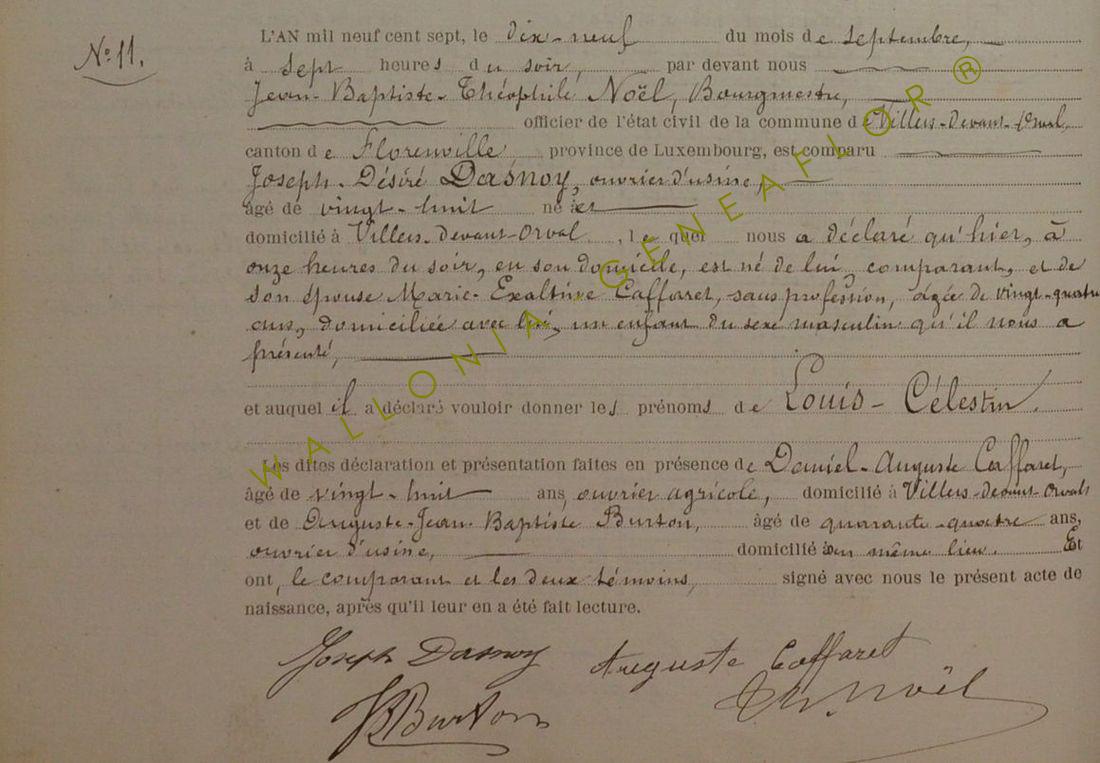 No 11.
L'AN mil neuf cent sept, le dix-neuf du mois de septembre,
à sept heures du soir, par devant nous
Jean-Baptiste-Théophile Noël, Bourgmestre,
officier de l'état civil de la commune de Villers-devant-Orval,
canton de Florenville province de Luxembourg, est comparu
Joseph-Désiré Dasnoy, ouvrier d'usine,
âgé de vingt-huit né à et
domicilié à Villers-devant-Orval, le quel nous a déclaré qu'hier, à
onze heures du soir, en son domicile, est né de lui, comparant, et de
son épouse Marie-Exaltine Caffaret, sans profession, âgée de vingt-quatre
ans, domiciliée avec lui, un enfant du sexe masculin qu'il nous a
présenté,
et auquel il a déclaré vouloir donner les prénoms de Louis-Célestin.
Les dites déclaration et présentation faites en présence de Daniel-Auguste Caffaret,
âgé de vingt-huit ans, ouvrier agricole, domicilié à Villers-devant-Orval
et de Auguste-Jean-Baptiste Burton, âgé de quarante-quatre ans,
ouvrier d'usine, domicilié au même lieu. Et
ont, le comparant et les deux témoins, signé avec nous le présent acte de
naissance, après qu'il leur en a été fait lecture.
Joseph Dasnoy Auguste Caffaret
JBBurton Th. Noël
WALLONIA GENEAFLOR ®